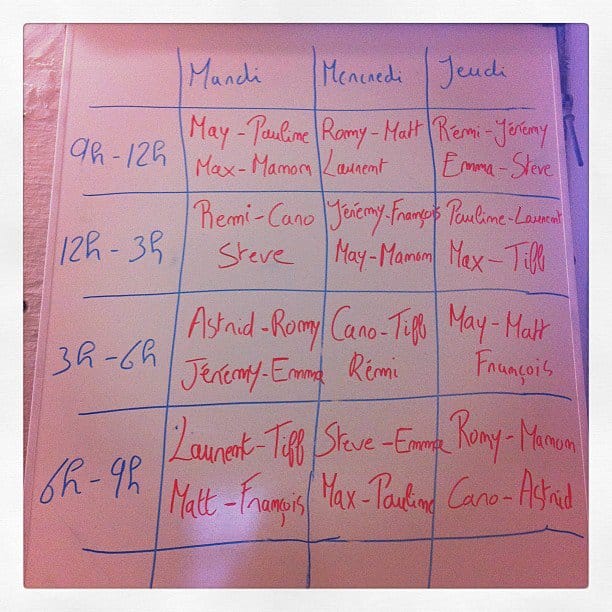 Mardi Mercredi Jeudi
9h - 12h
May - Pauline Romy - Matt Rémi - Jérémy
Max - Manon Laurent Emma - Steve
12h - 3h
Remi - Cano Jérémy - François Pauline - Laurent
Steve May - Manon Max - Tiff
3h - 6h
Astrid - Romy Cano - Tiff May - Matt
Jérémy - Emma Rémi François
6h - 9h
Laurent - Tiff Steve - Emma Romy - Manon
Matt - François Max - Pauline Cano - Astrid